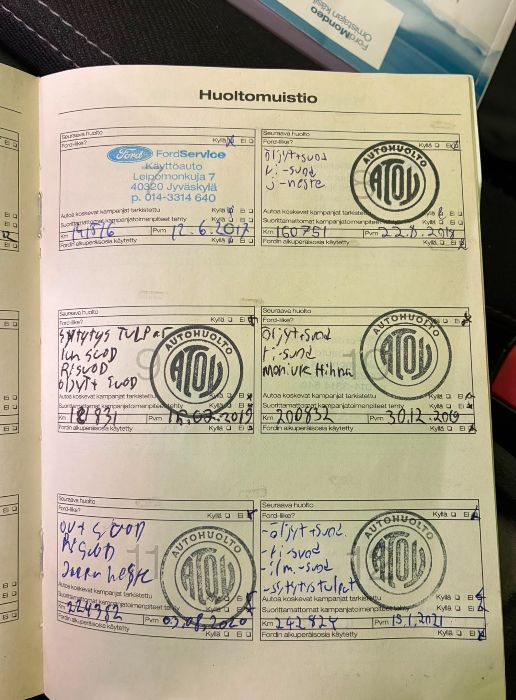 FordMondeo
Omistajan käsi
Huoltomuistio
Seuraava huolto
Ford-liike? Kyllä Ei
Ford FordService
Käyttöauto
Leipomonkuja 7
40320 Jyväskylä
p. 014-3314 640
Autoa koskevat kampanjat tarkistettu Kyllä Ei
Suorittamattomat kampanjatoimenpiteet tehty Kyllä Ei
Km Pvm 12.6.2017
Fordin alkuperäisosia käytetty Kyllä Ei
Seuraava huolto
Ford-liike? Kyllä Ei
öljyt+suod
ri-suod
j-neste
AUTOHUOLTO
ATOY
Autoa koskevat kampanjat tarkistettu Kyllä Ei
Suorittamattomat kampanjatoimenpiteet tehty Kyllä Ei
Km 160751 Pvm 22.8.2018
Fordin alkuperäisosia käytetty Kyllä Ei
Seuraava huolto
Ford-liike? Kyllä Ei
SYTYTYS TULPAT
ilm SUOD
RISUOD
öljyt+ SUOD
AUTOHUOLTO
ATOY
Autoa koskevat kampanjat tarkistettu Kyllä Ei
Suorittamattomat kampanjatoimenpiteet tehty Kyllä Ei
Km 181931 Pvm 2019
Fordin alkuperäisosia käytetty Kyllä Ei
Seuraava huolto
Ford-liike? Kyllä Ei
öljyt+suod
ri-suod
moniurahihna
AUTOHUOLTO
ATOY
10
Autoa koskevat kampanjat tarkistettu Kyllä Ei
Suorittamattomat kampanjatoimenpiteet tehty Kyllä Ei
Km 200832 Pvm 30.12.2019
Fordin alkuperäisosia käytetty Kyllä Ei
Seuraava huolto
Ford-liike? Kyllä Ei
SUOD
RISUOD
Jarruneste
AUTOHUOLTO
ATOY
11
Autoa koskevat kampanjat tarkistettu Kyllä Ei
Suorittamattomat kampanjatoimenpiteet tehty Kyllä Ei
Km 224982 Pvm 03.08.2020
Fordin alkuperäisosia käytetty Kyllä Ei
Seuraava huolto
Ford-liike? Kyllä Ei
-öljyt+suod.
-ri-suod
-ilm.-suod
-sytytystulpat
AUTOHUOLTO
ATOY
Autoa koskevat kampanjat tarkistettu Kyllä Ei
Suorittamattomat kampanjatoimenpiteet tehty Kyllä Ei
Km 242824 Pvm 15.1.2021
Fordin alkuperäisosia käytetty Kyllä Ei